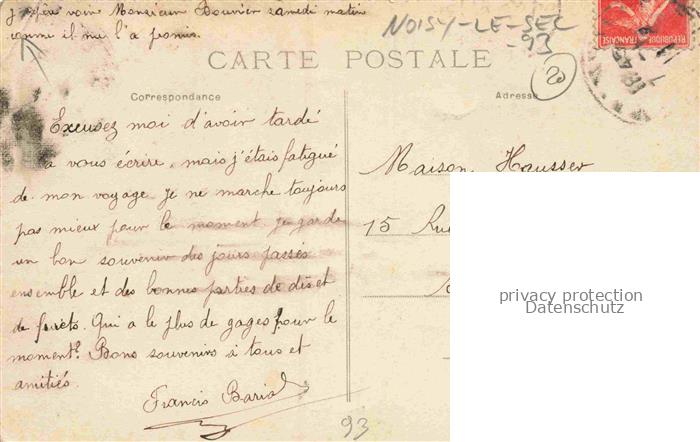 J'espère voir Monsieur Bouvier samedi matin
comme il me l'a promis.
NOISY-LE-SEC
-93
REPUBLIQUE FRANÇAISE
CARTE POSTALE
20
Correspondance
Adresse
Excusez moi d'avoir tardé
a vous écrire, mais j'étais fatigué
de mon voyage. Je ne marche toujours
pas mieux pour le moment. Je garde
un bon souvenir des jours passés
ensemble et des bonnes parties de dés et
de furets. Qui a le plus de gages pour le
moment? Bons souvenirs à tous et
amitiés
Francis
Maison Hausser
15 Rue
privacy protection
Datenschutz
93